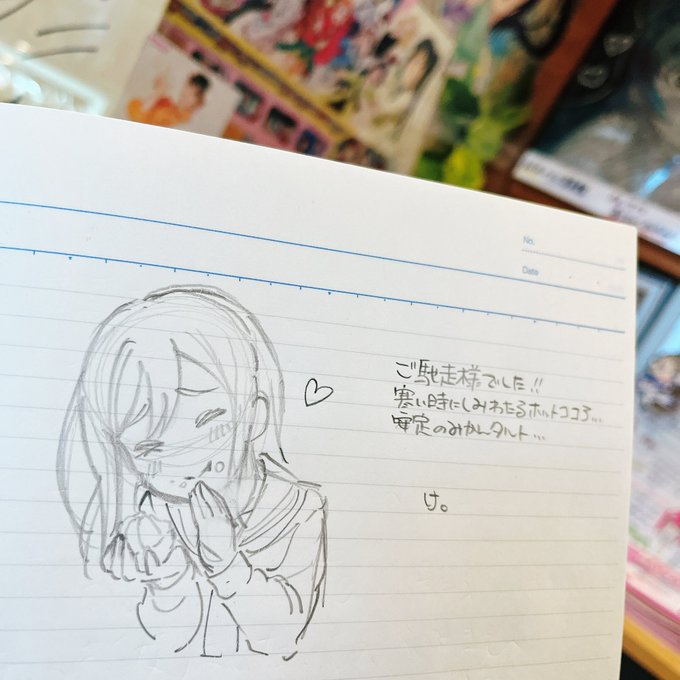 No.
Date
ご馳走様でした!!
寒い時にしみわたるホットココア…
安定のみかんタルト…
け。